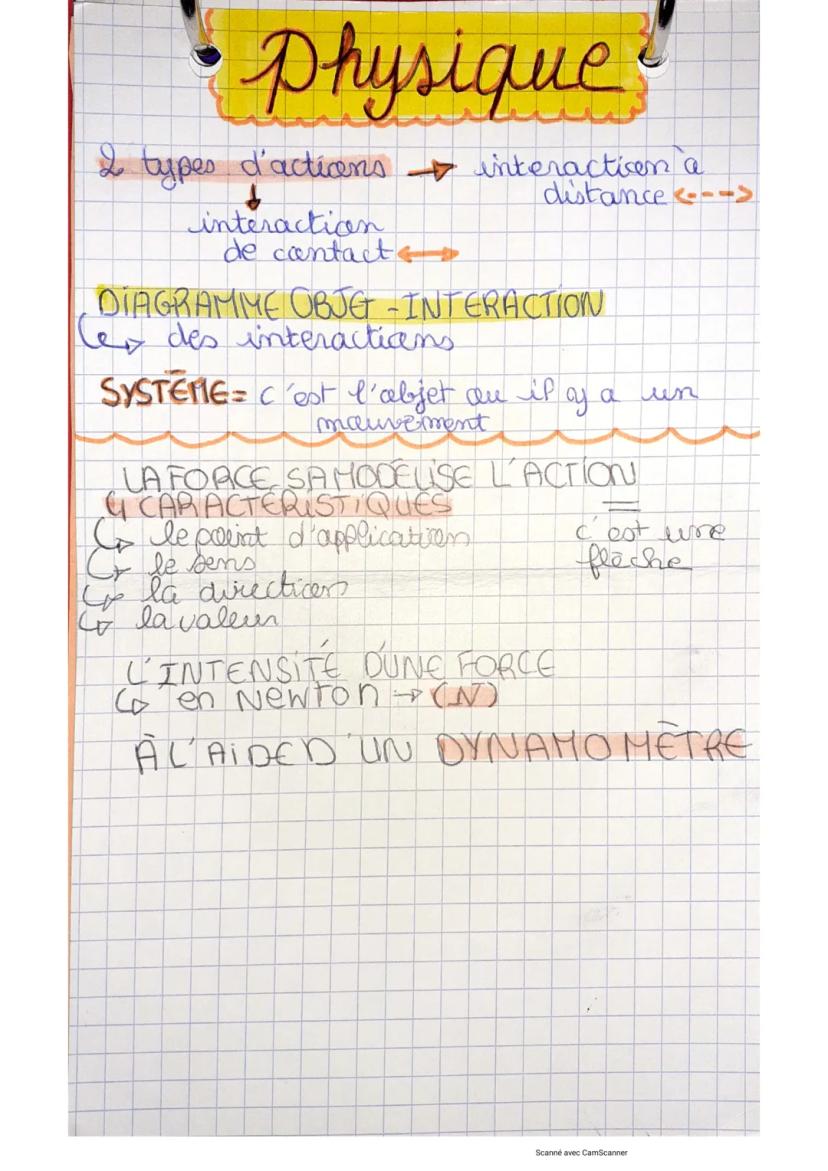 Physique
2 types d'actions → interaction à
distance <--->
↓
interaction
de contact ↔
DIAGRAMME OBJET - INTERACTION
↳ des interactions
SYSTÈME = c'est l'objet ou il y a un
mouvement
LA FORCE SA MODELISE L'ACTION
4 CARACTÉRISTIQUES =
↳ le point d'application c'est une
↳ le sens flèche
↳ la direction
↳ la valeur
L'INTENSITÉ D'UNE FORCE
↳ en NEWTON → (N)
À L'AIDE D'UN DYNAMOMÈTRE
Scanné avec CamScanner